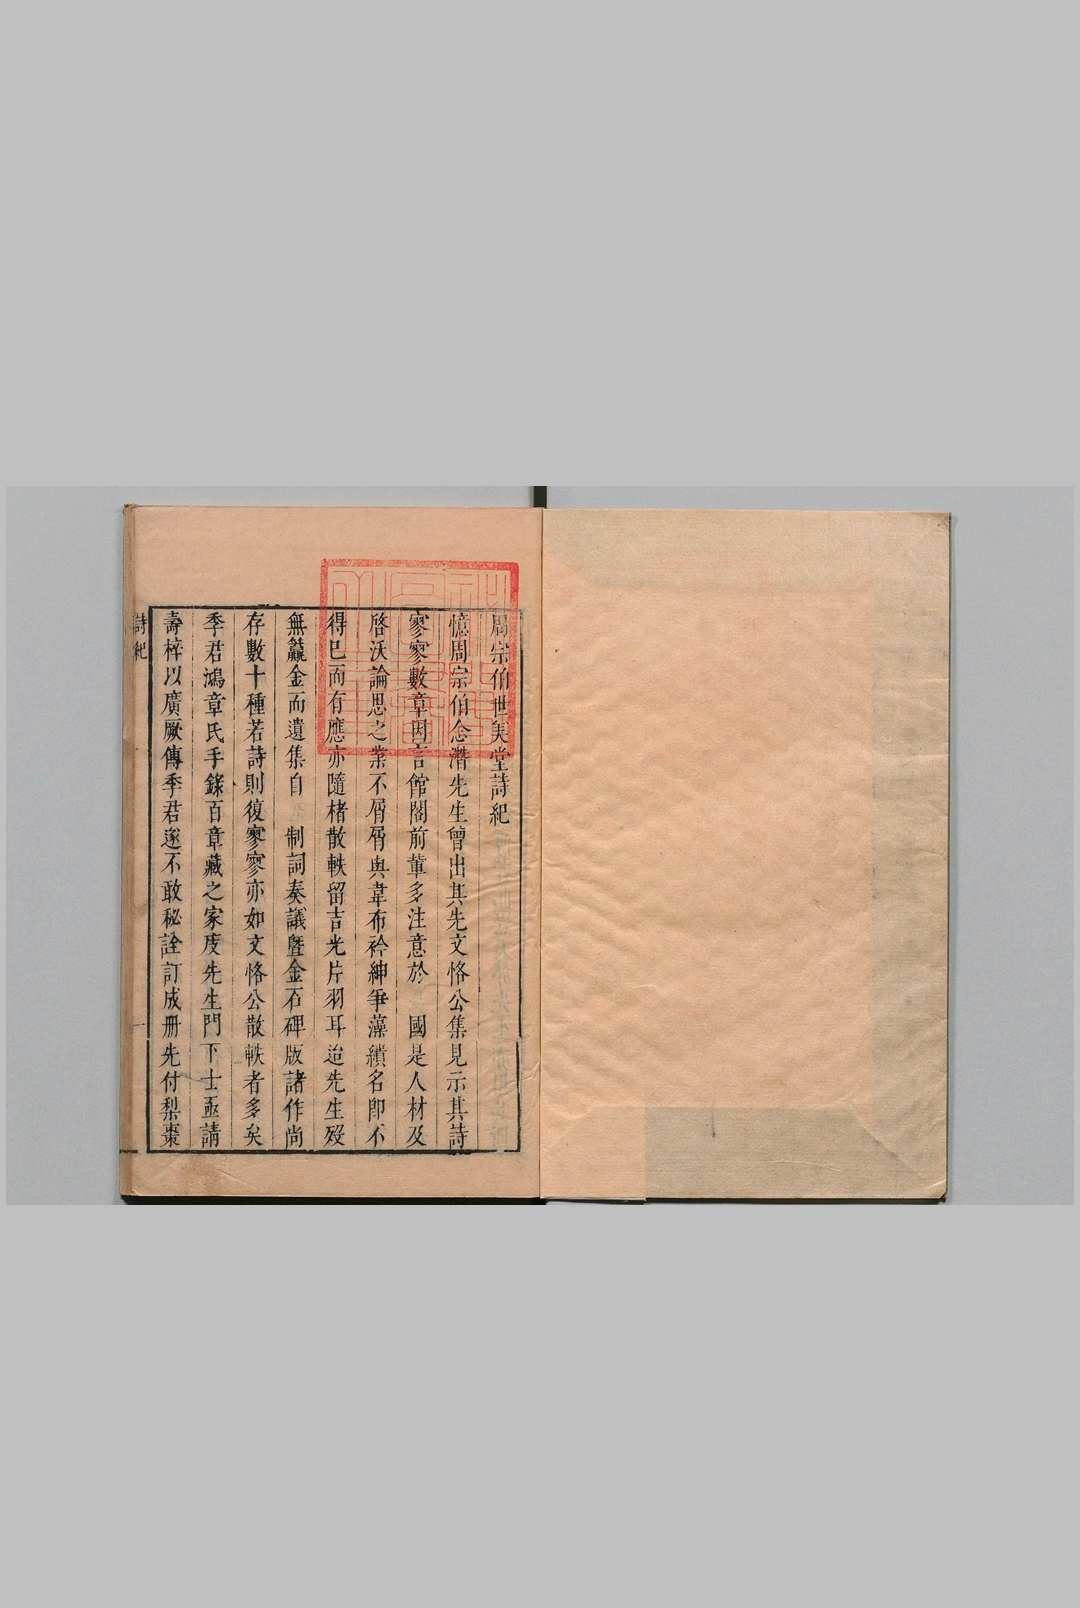 周宗伯世美堂詩紀
憶周宗伯念潛先生曾出其先文恪公集見示其詩
寥寥數章因言館閣前輩多注意於 國是人材及
啓沃論思之業不屑屑與韋布衿紳爭藻繢名即不
得已而有應亦隨楮散軼留吉光片羽耳迨先生歿
無籯金而遺集自 制詞奏議暨金石碑版諸作尚
存數十種若詩則復寥寥亦如文恪公散軼者多矣
季君鴻章氏手錄百章藏之家度先生門下士亟請
壽梓以廣厥傳季君遂不敢秘詮訂成册先付梨棗
詩紀
一